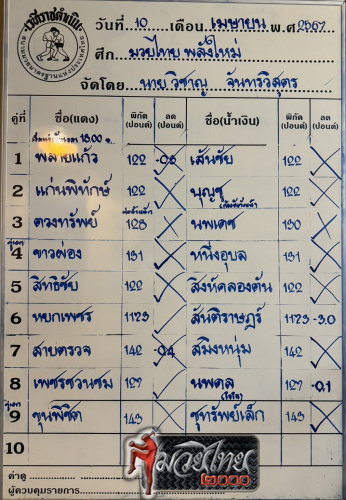 เวทีราชดำเนิน
สนามมวยมาตรฐานแห่งประเทศไทย
วันที่ 10 เดือน เมษายน พ.ศ 2567
ศึก มวยไทย พลังใหม่
จัดโดย นาย วิชาญ จันทรวิสูตร
คู่ที่ ชื่อ(แดง) พิกัด (ปอนด์) ลด (ปอนด์) ชื่อ(น้ำเงิน) พิกัด (ปอนด์) ลด (ปอนด์)
1 พลายแก้ว 122 เส้นชัย 122
2 แก่นพิทักษ์ 122 บุญชู 122
3 ดวงทรัพย์ 128 นพเดช 130
4 ขาวผ่อง 131 หนึ่งอุบล 131
5 สิทธิชัย 122 สิงห์คลองตัน 122
6 หยกเพชร 1123 สันติราษฎร์ 1123 -3.0
7 สายตรวจ 142 -0.4 สมิงหนุ่ม 142
8 เพชรชวนชม 127 นพดล 127 -0.1
9 ขุนพิชิต 143 ชูทรัพย์เล็ก 143
10
ค่าดู
ผู้ควบคุมรายการ
มวยไทย
๒๐๐๐